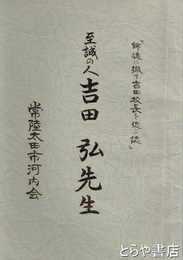 「師道に徹す吉田校長を偲ぶ誌」
至誠の人 吉田 弘 先生
常陸太田市河内会
とらや書店